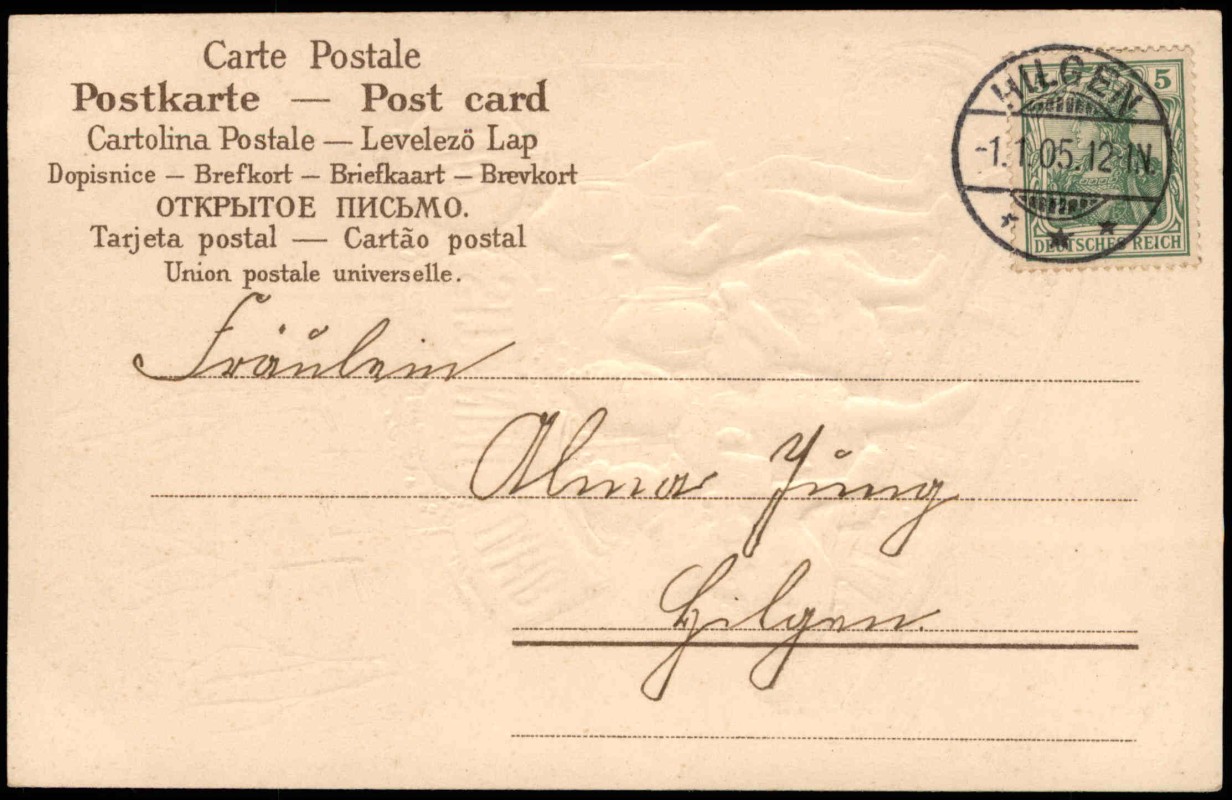 Carte Postale
Postkarte — Post card
Cartolina Postale — Levelező Lap
Dopisnice — Brefkort — Briefkaart — Brevkort
ОТКРЫТОЕ ПИСЬМО.
Tarjeta postal — Cartão postal
Union postale universelle.
HILGEN
-1.1.05.12-1N.
* * *
5
DEUTSCHES REICH
Fräulein
Alma Jung
Hilgen.